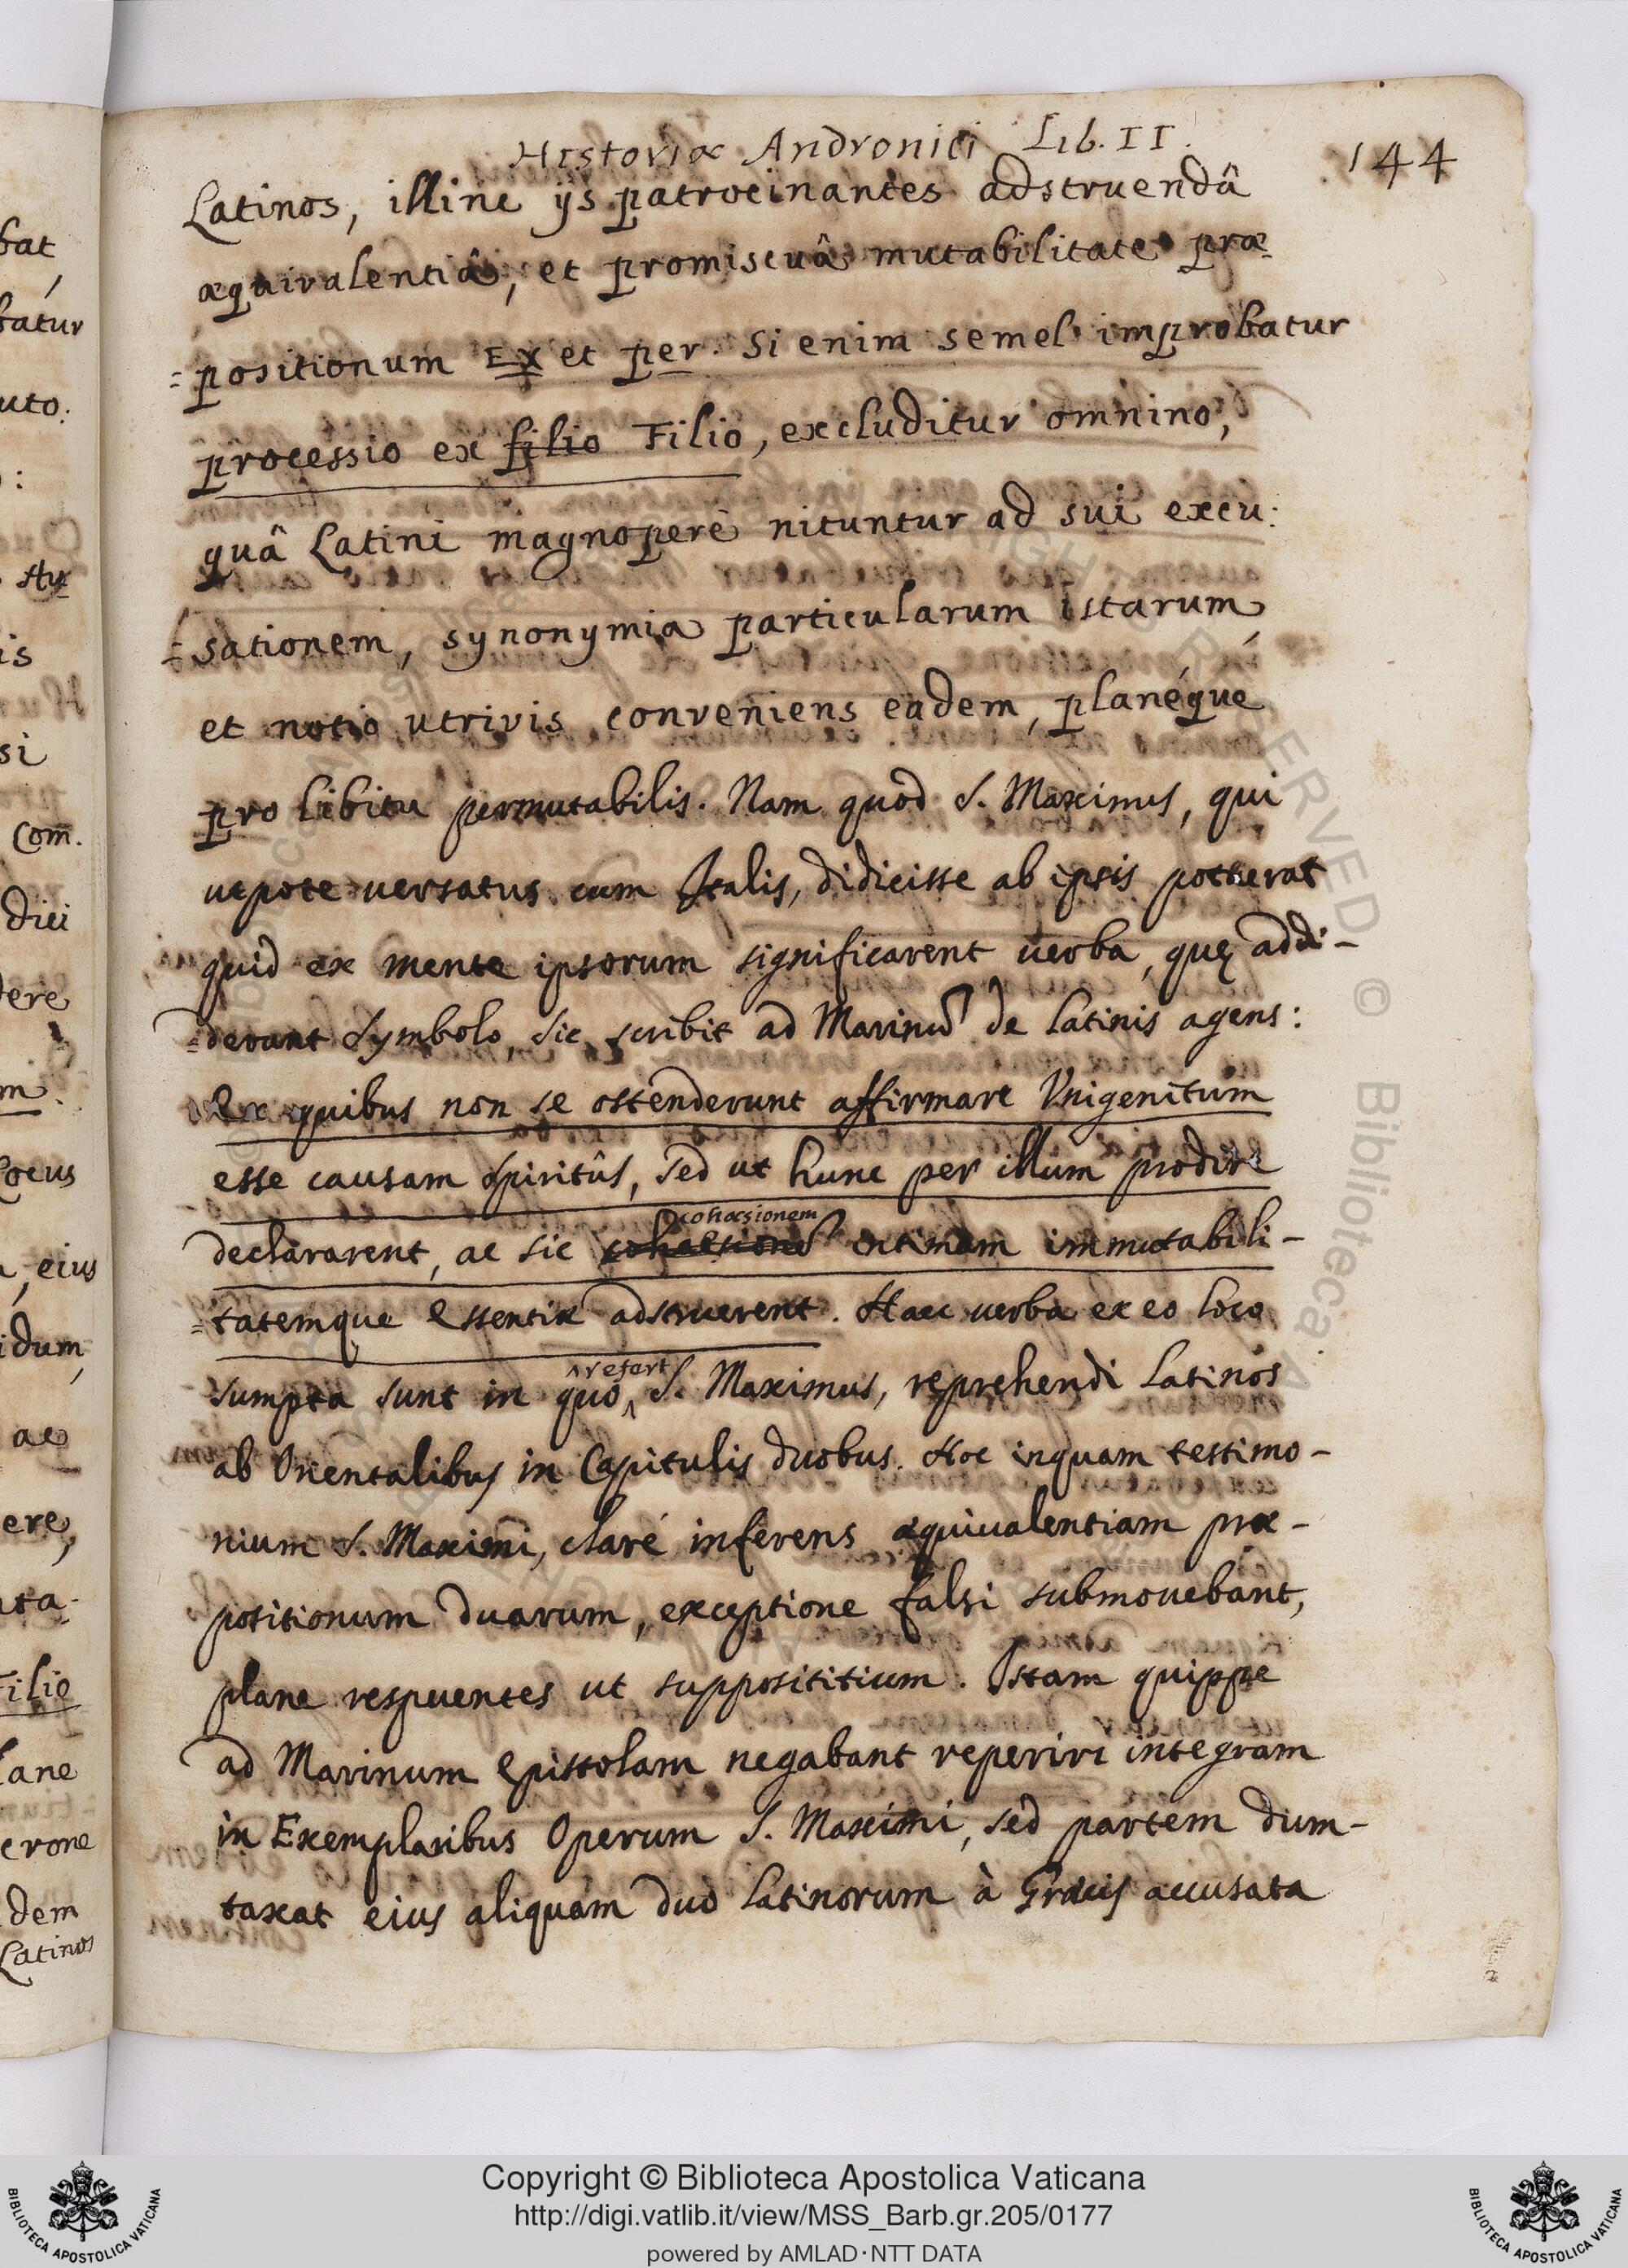 Historiæ Andronici Lib. II.
144
Latinos, illinc ijs patrocinantes adstruendâ
æquivalentiâ, et promiscuâ mutabilitate præ=
=positionum Ex et per. Si enim semel improbatur
processio ex filio Filio, excluditur omnino,
quâ Latini magnoperè nituntur ad sui excu:
=sationem, synonymia particularum istarum,
et notio utrivis conveniens eadem, planéque
pro libitu permutabilis. Nam quod S. Maximus, qui
utpote versatus cum Italis, didicisse ab ipsis potuerat
quid ex mente ipsorum significarent uerba, quę addi-
=derant Symbolo, sic scribit ad Marinũ de Latinis agens:
Ex quibus non se ostenderunt affirmare Vnigenitum
esse causam Spiritûs, sed ut hunc per illum prodire
cohæsionem
declararent, ac sic cohaesionẽ intimam immutabili-
=tatemque essentiæ adstruerent. Haec uerba ex eo loco
refert
sumpta sunt in quo S. Maximus, reprehendi Latinos
ab Orientalibus in Capitulis duobus. Hoc inquam testimo-
nium S. Maximi, claré inferens æquiualentiam præ-
positionum duarum, exceptione falsi submouebant,
plane respuentes ut supposititium. Istam quippe
ad Marinum epistolam negabant reperiri integram
in Exemplaribus Operum S. Maximi, sed partem dum-
taxat eius aliquam duo Latinorum à Græcis accusata
bat,
batur
uto.
:
is
si
Com.
dici
dere
m.
Locus
, eius
idum,
ac
ere,
ata.
Filio
lane
erone
dem
Latinos
Copyright © Biblioteca Apostolica Vaticana
http://digi.vatlib.it/view/MSS_Barb.gr.205/0177
powered by AMLAD·NTT DATA
BIBLIOTECA APOSTOLICA VATICANA
BIBLIOTECA APOSTOLICA VATICANA